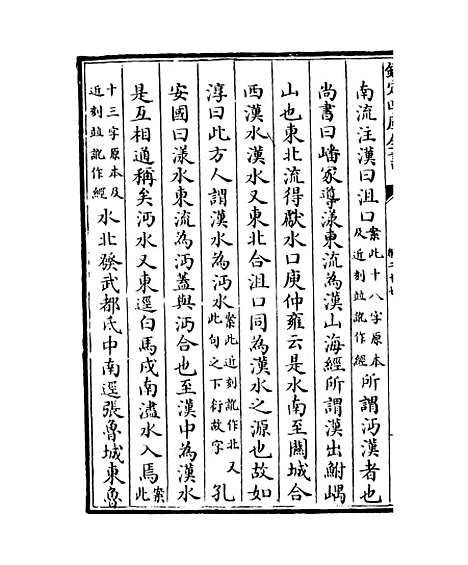 南流注漢曰沮口案此十八字原本及近刻竝訛作經所謂沔漢者也
尚書曰嶓冢導漾東流為漢山海經所謂漢出鮒嵎
山也東北流得獻水口庾仲雍云是水南至關城合
西漢水漢水又東北合沮口同為漢水之源也故如
淳曰此方人謂漢水為沔水案此近刻訛作北又此句之下衍故字孔
安國曰漾水東流為沔蓋與沔合也至漢中為漢水
是互相通稱矣沔水又東逕白馬戍南濜水入焉案此
十三字原本及近刻竝訛作經水北發武都氐中南逕張魯城東魯